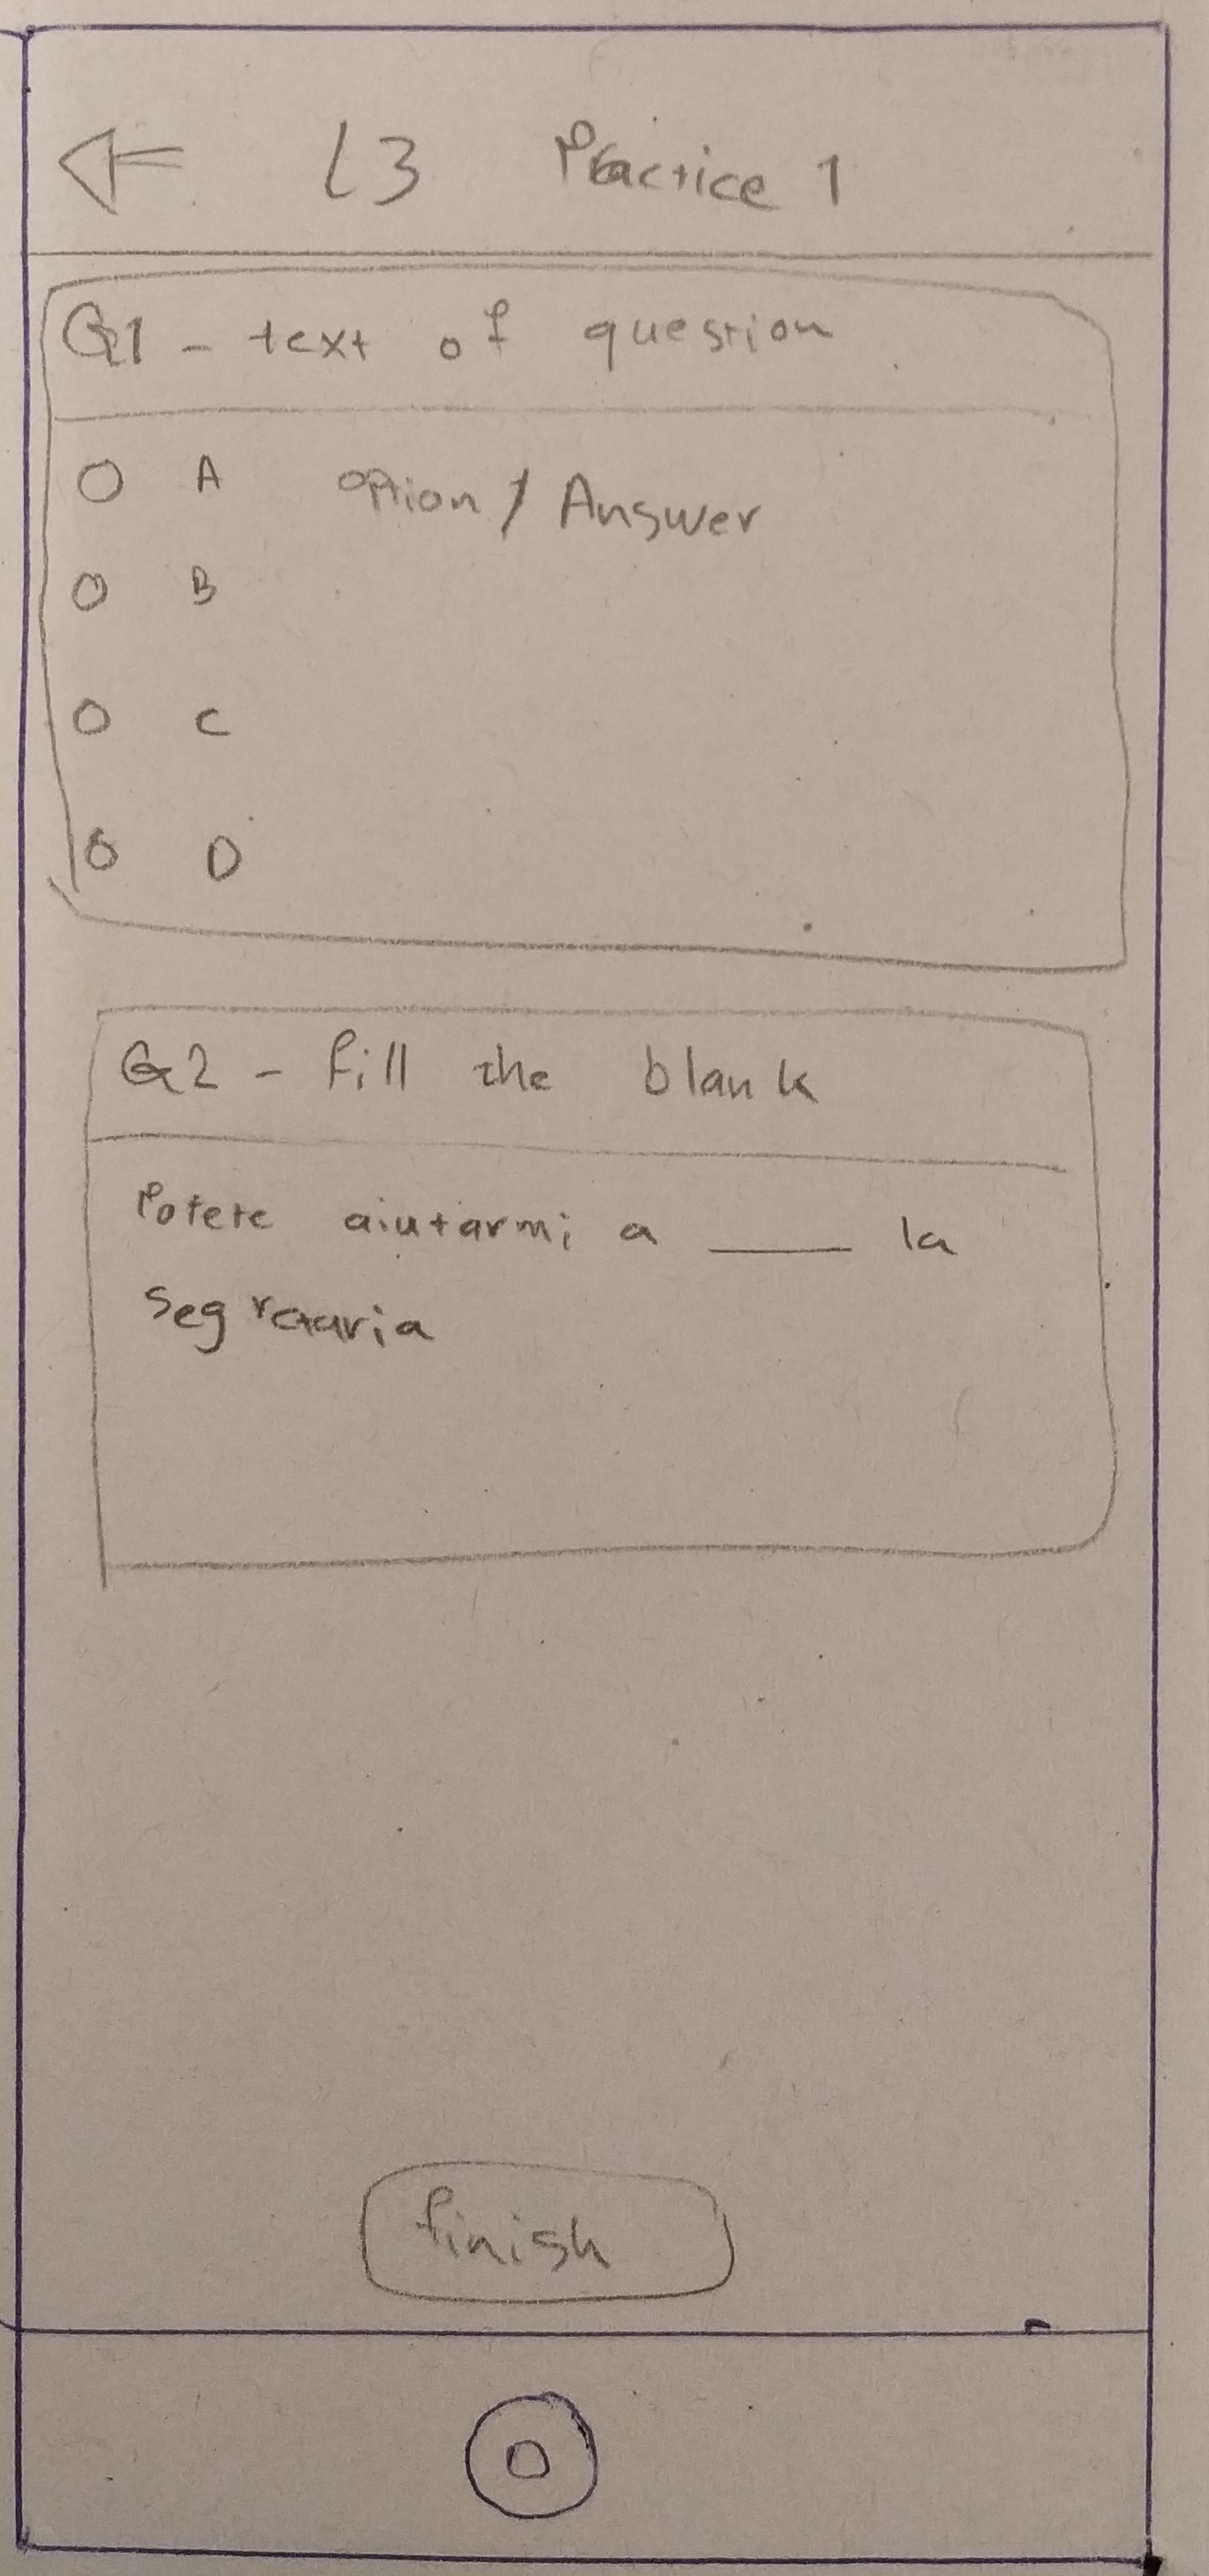 L3 Practice 1
Q1 - text of question
A option / Answer
B
C
D
Q2 - fill the blank
Potete aiutarmi a ____ la
segretaria
finish